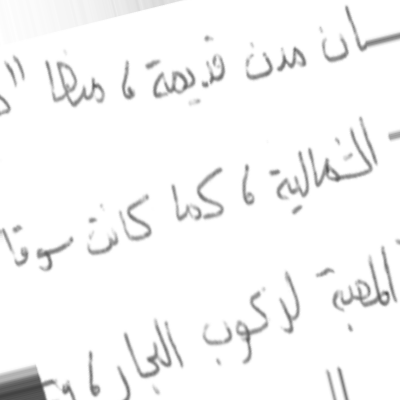 سان مدن قديمة ، منها "
الشمالية ، كما كانت سوقا
المهبة لركوب البحار ،